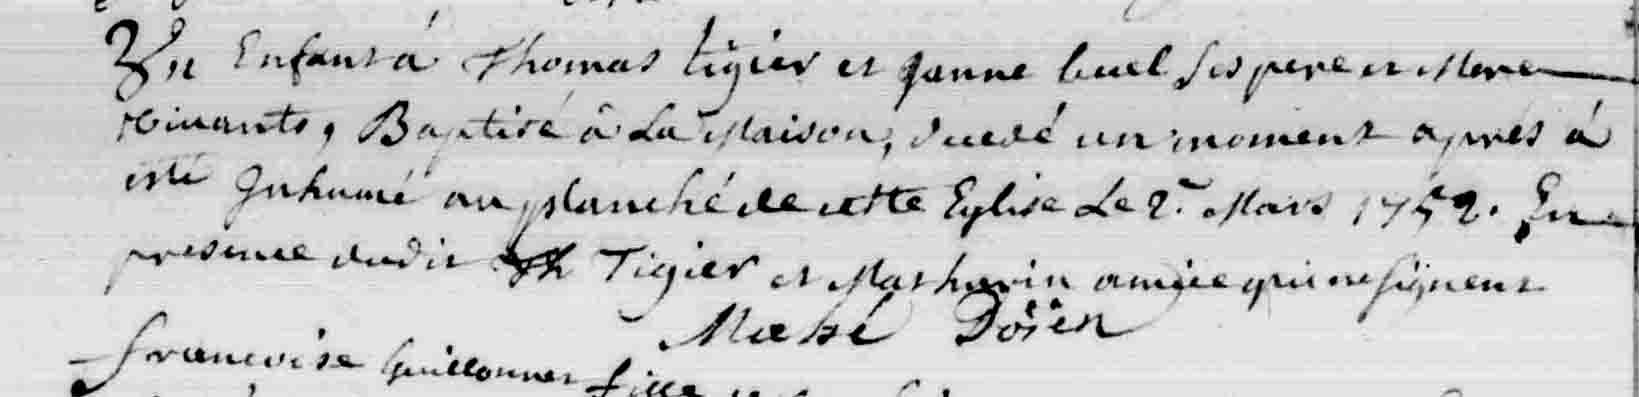 Un Enfant á Thomas tigier et Janne buel ses pere et Mere
vivants, Baptisé â La Maison, decedé un moment apres á
esté Inhumé au planché de cette Eglise Le 2.e Mars 1752. En
presence dudit Th Tigier et Mathurin qui ne signent
Macé Doïen
francoise Guillonnet fille